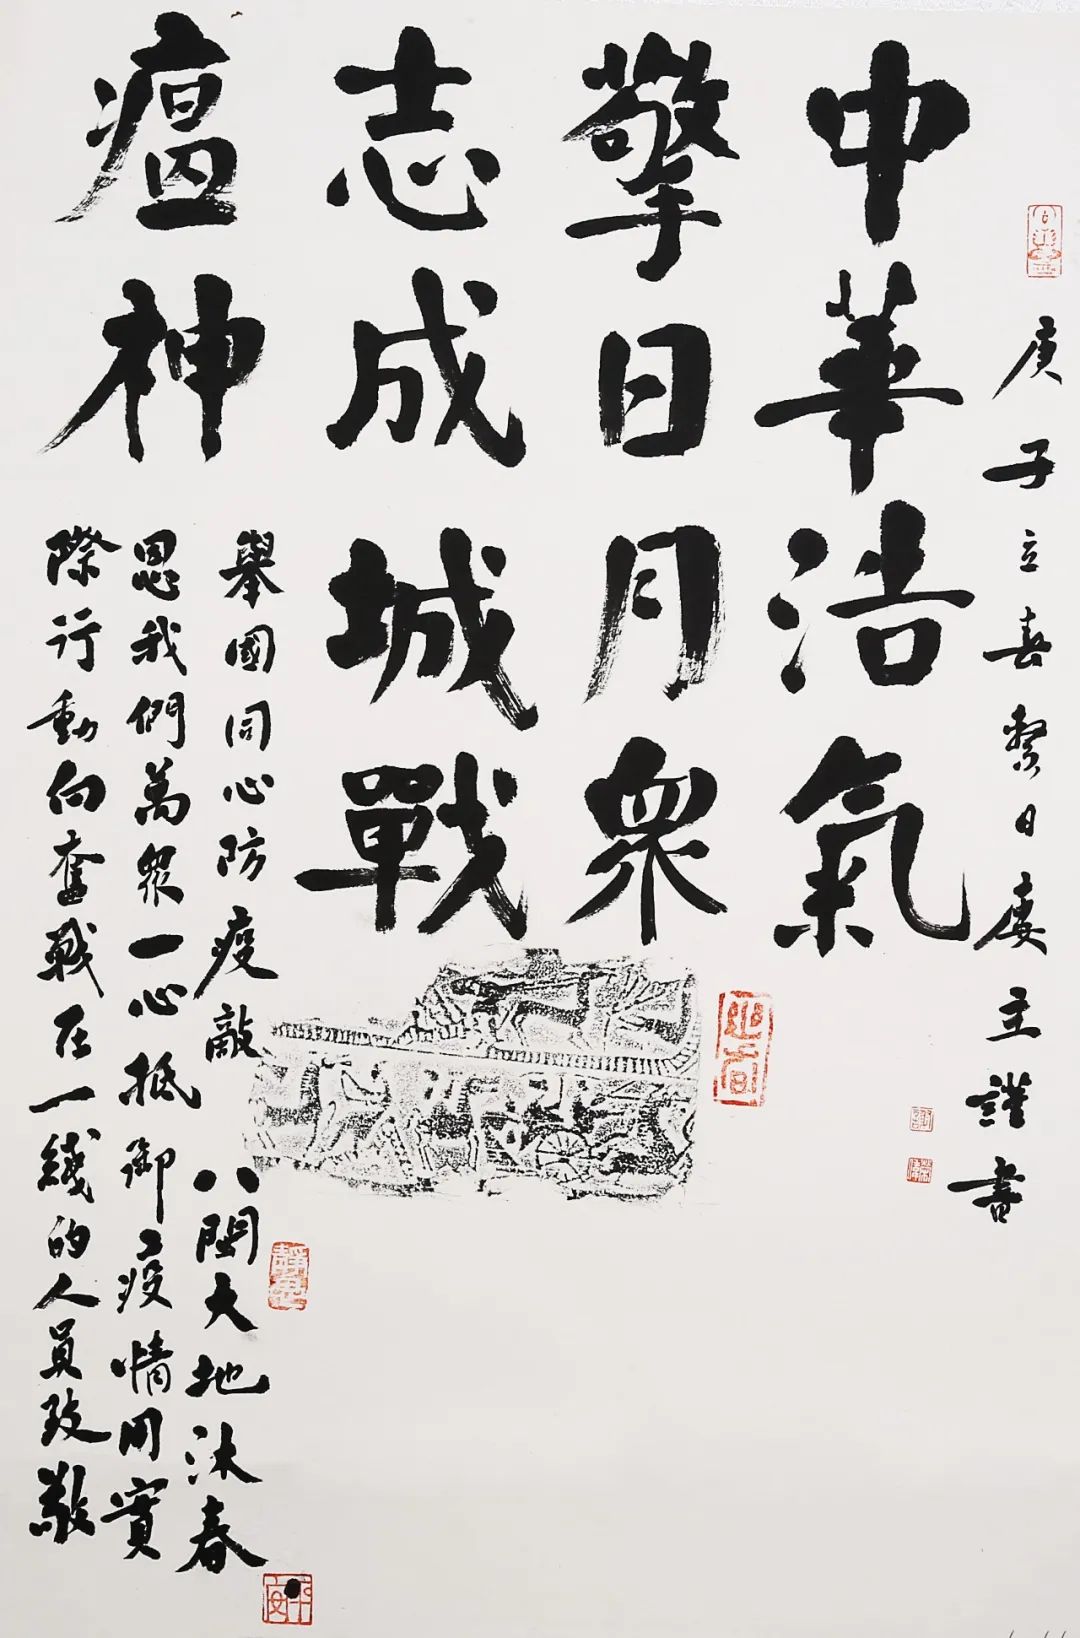 庚子立春繫日廔主謹書
中華浩氣
擎日月眾
志成城戰
瘟神
舉國同心防疫敵 八閩大地沐春
恩我們萬眾一心抵御疫情用實
際行動向奮戰在一綫的人員致敬